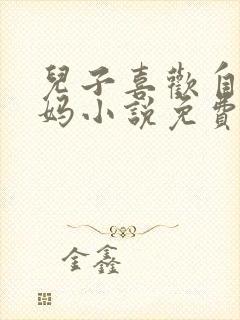 兒子喜歡自
媽小說免費
金鑫